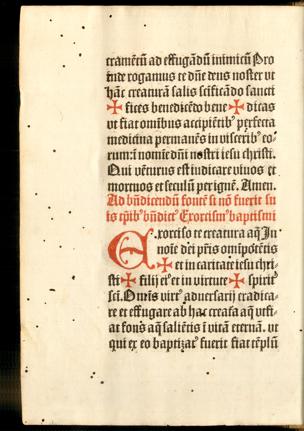 cramētū ad effugādū inimicū Pro
inde rogamus te dñe deus noster ut
hāc creaturā salis scificādo sancti
✠ fices benedicēdo bene ✠ dicas
ut fiat omībus accipiētibꝰ perfecta
medicina permanēs in visceribꝰ eo⸗
rum: ī nomīe dn̄i nostri iesu christi.
Qui vēturus est iudicare vivos et
mortuos et seculū per ignē. Amen.
Ad bn̄dicendum fontē si nō fuerit su
is bn̄dictꝰ Exorcismꝰ baptismi
Exorciso te creatura aq̄ In
noīe dei pr̄is omīpotētis
✠ et in caritate iesu chri⸗
sti ✠ filij eiꝰ et in virtute ✠ spiritꝰ
sci. Om̄is virtꝰ adversarij eradica⸗
re et effugare ab hac creatura aq̄ ut fi⸗
at fons aq̄ saliētis ī vitā eternā. ut
qui ex eo baptizatꝰ fuerit fiat tēplū